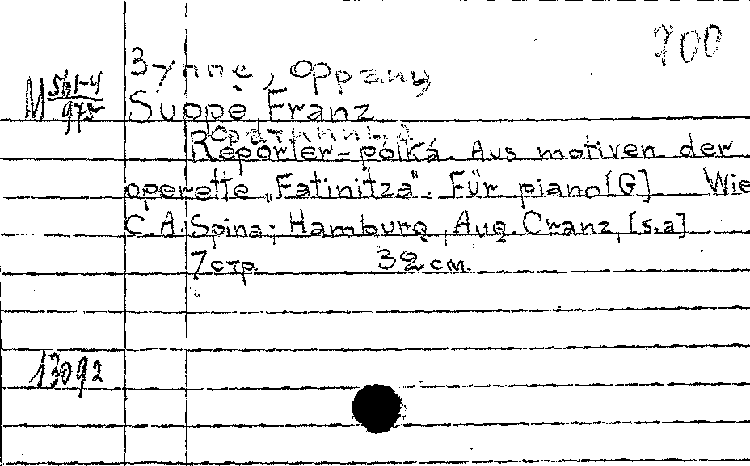 700
Зуппе,
М 561-4
Suppe Franz
Reporter-polka. Aus motiven der
operette „Fatinitza“. Für piano [G] Wie
C.A. Spina; Hamburg, Aug. Cranz, [s.a]
7 стр. 32 см.
13092